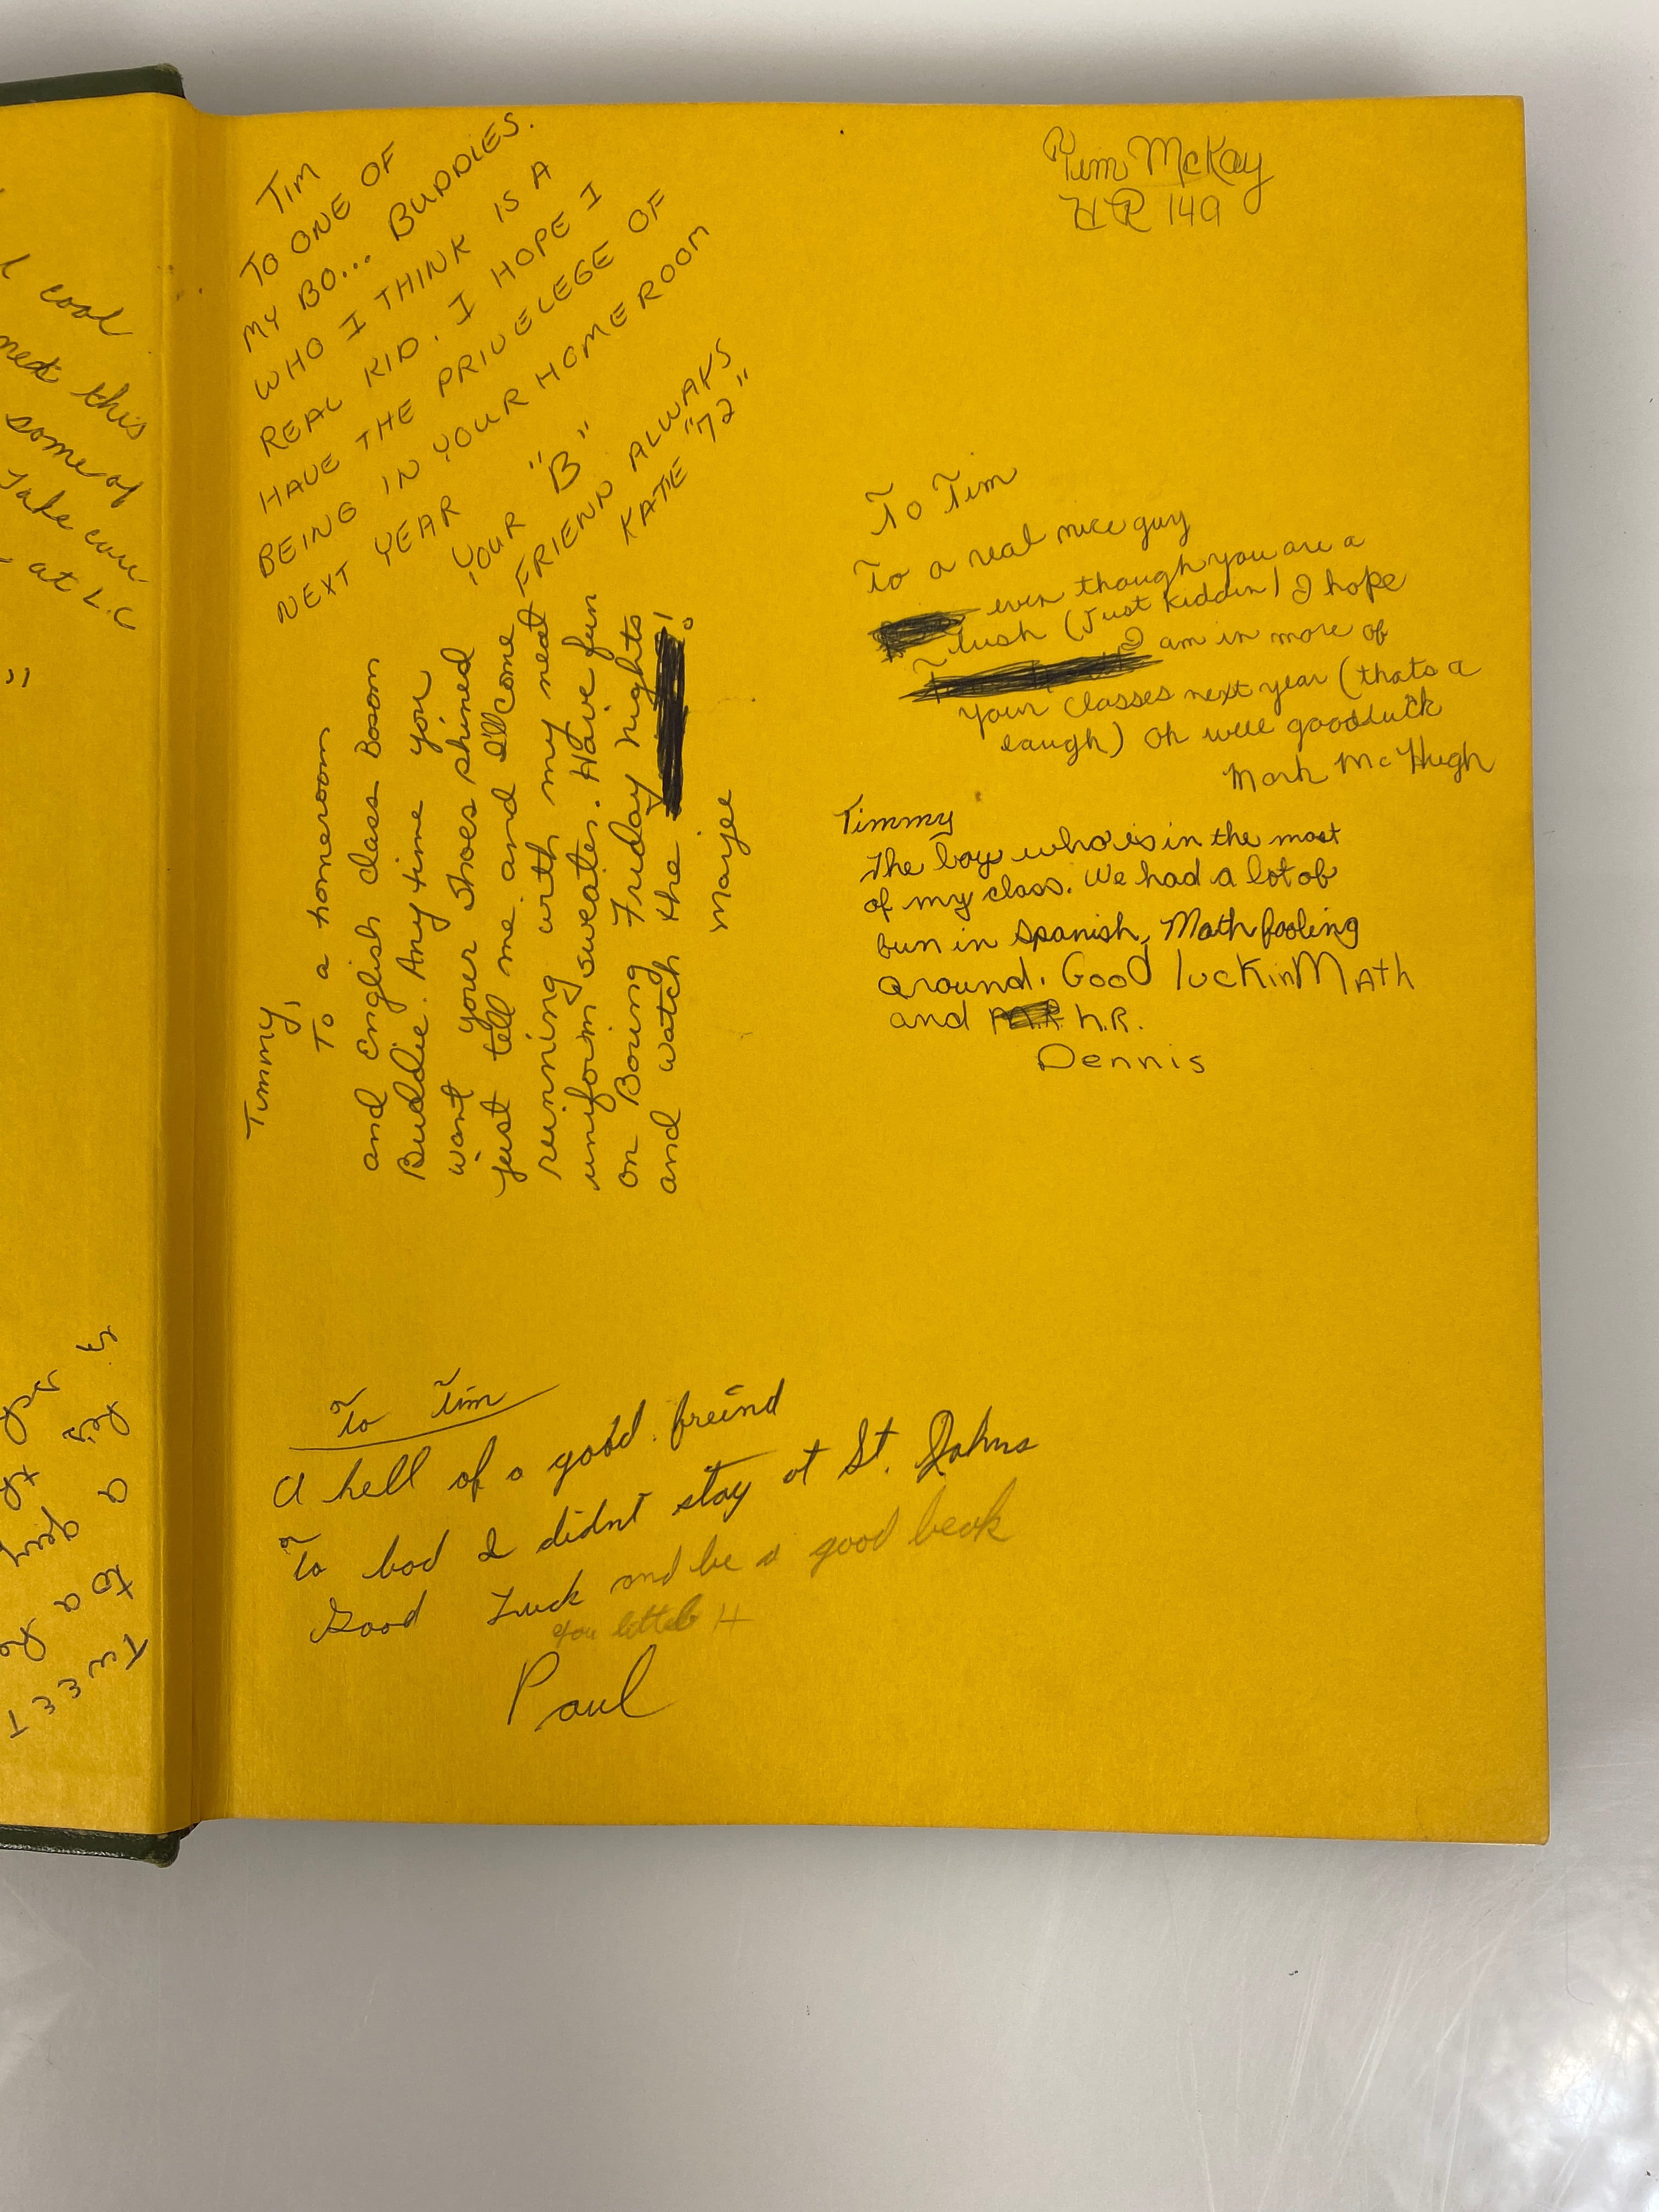 l cool
next this
some of
Take care
at L.C
TIM
TO ONE OF
MY BO... BUDDIES.
WHO I THINK IS A
REAL KID. I HOPE I
HAVE THE PRIVELEGE OF
BEING IN YOUR HOMEROOM
NEXT YEAR
YOUR "B"
FRIENN ALWAYS
KATIE "72"
Tim McKay
HR 149
To Tim
To a real nice guy
even though you are a
Tush (Just kiddin) I hope
I am in more of
your classes next year (thats a
laugh) Oh well goodluck
Mark McHugh
Timmy,
To a homeroom
and English class Bosom
Buddie. Any time you
want your shoes shined
just tell me and I'll come
running with my neat
uniform sweater. Have fun
on Boring Friday nights
and watch the !
Marjee
Timmy
The boy who is in the most
of my class. We had a lot of
fun in Spanish, Math fooling
around. Good luck in Math
and h.R.
Dennis
To Tim
A hell of a good freind
To bad I didnt stay at St. Johns
Good Luck and be a good beak
you little H
Paul